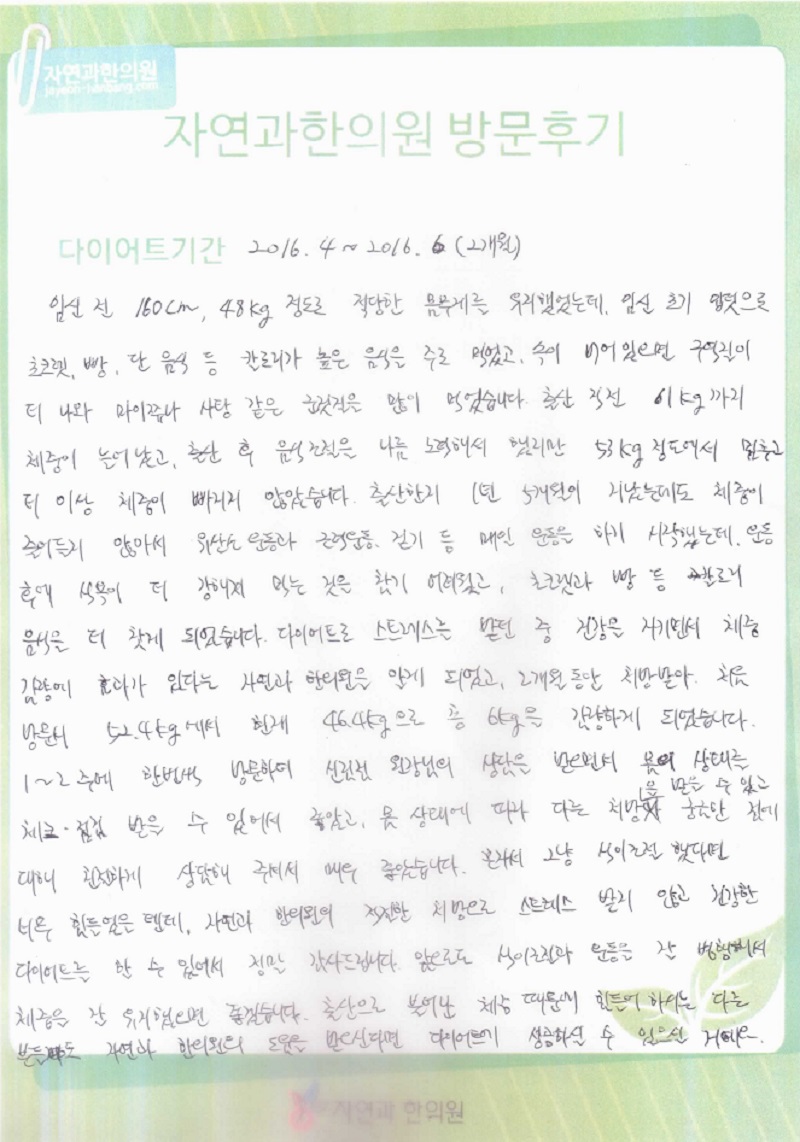 자연과한의원
jayeon-hanbang.com
자연과한의원 방문후기
다이어트기간 2016. 4 ~ 2016. 6 (2개월)
임신 전 160cm, 48kg 정도로 적당한 몸무게를 유지했었는데, 임신 초기 입덧으로
초코렛, 빵, 단 음식 등 칼로리가 높은 음식을 주로 먹었고, 속이 비어있으면 구역질이
더 나와 마이쮸나 사탕 같은 군것질을 많이 먹었습니다. 출산 직전 61kg까지
체중이 늘어났고, 출산 후 음식조절을 나름 노력해서 했지만 53kg 정도에서 멈추고
더 이상 체중이 빠지지 않았습니다. 출산한지 1년 5개월이 지났는데도 체중이
줄어들지 않아서 유산소 운동과 근력운동, 걷기 등 매일 운동을 하기 시작했는데, 운동
후에 식욕이 더 강해져 먹는 것을 참기 어려웠고, 초코렛과 빵 등 칼로리
음식을 더 찾게 되었습니다. 다이어트로 스트레스를 받던 중 건강을 지키면서 체중
감량에 효과가 있다는 자연과 한의원을 알게 되었고, 2개월 동안 처방받아, 처음
방문시 52.4kg에서 현재 46.4kg으로 총 6kg을 감량하게 되었습니다.
1~2주에 한번씩 방문하여 원장님의 상담을 받으면서 몸의 상태를
체크·점검 받을 수 있어서 좋았고, 몸 상태에 따라 다른 처방을 받을 수 있고 궁금한 점에
대해 친절하게 상담해 주셔서 매우 좋았습니다. 혼자서 그냥 식이조절 했다면
너무 힘들었을 텐데, 자연과 한의원의 적절한 처방으로 스트레스 받지 않고 건강한
다이어트를 할 수 있어서 정말 감사드립니다. 앞으로도 식이조절과 운동을 잘 병행해서
체중을 잘 유지했으면 좋겠습니다. 출산으로 불어난 체중 때문에 힘들어 하시는 다른
분들도 자연과 한의원의 도움을 받으신다면 다이어트에 성공하실 수 있으실 거예요.
자연과 한의원